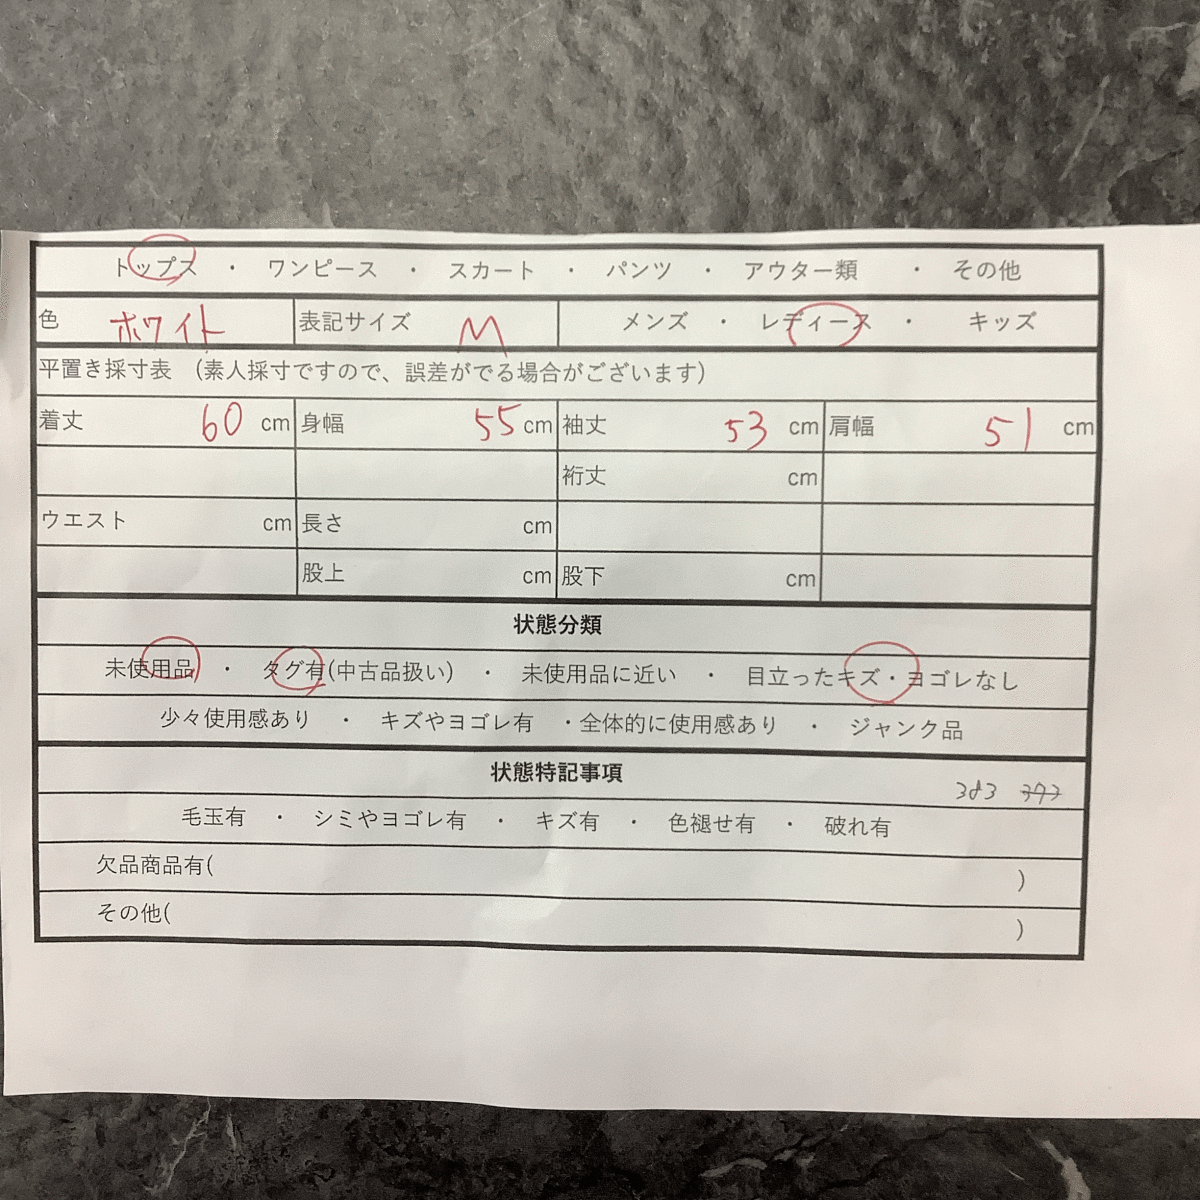 トップス ・ ワンピース ・ スカート ・ パンツ ・ アウター類 ・ その他
色 ホワイト 表記サイズ M メンズ ・ レディース ・ キッズ
平置き採寸表 (素人採寸ですので、誤差がでる場合がございます)
着丈 60 cm 身幅 55 cm 袖丈 53 cm 肩幅 51 cm
裄丈 cm
ウエスト cm 長さ cm
股上 cm 股下 cm
状態分類
未使用品 ・ タグ有(中古品扱い) ・ 未使用品に近い ・ 目立ったキズ・ヨゴレなし
少々使用感あり ・ キズやヨゴレ有 ・全体的に使用感あり ・ ジャンク品
状態特記事項
383
毛玉有 ・ シミやヨゴレ有 ・ キズ有 ・ 色褪せ有 ・ 破れ有
欠品商品有( )
その他( )